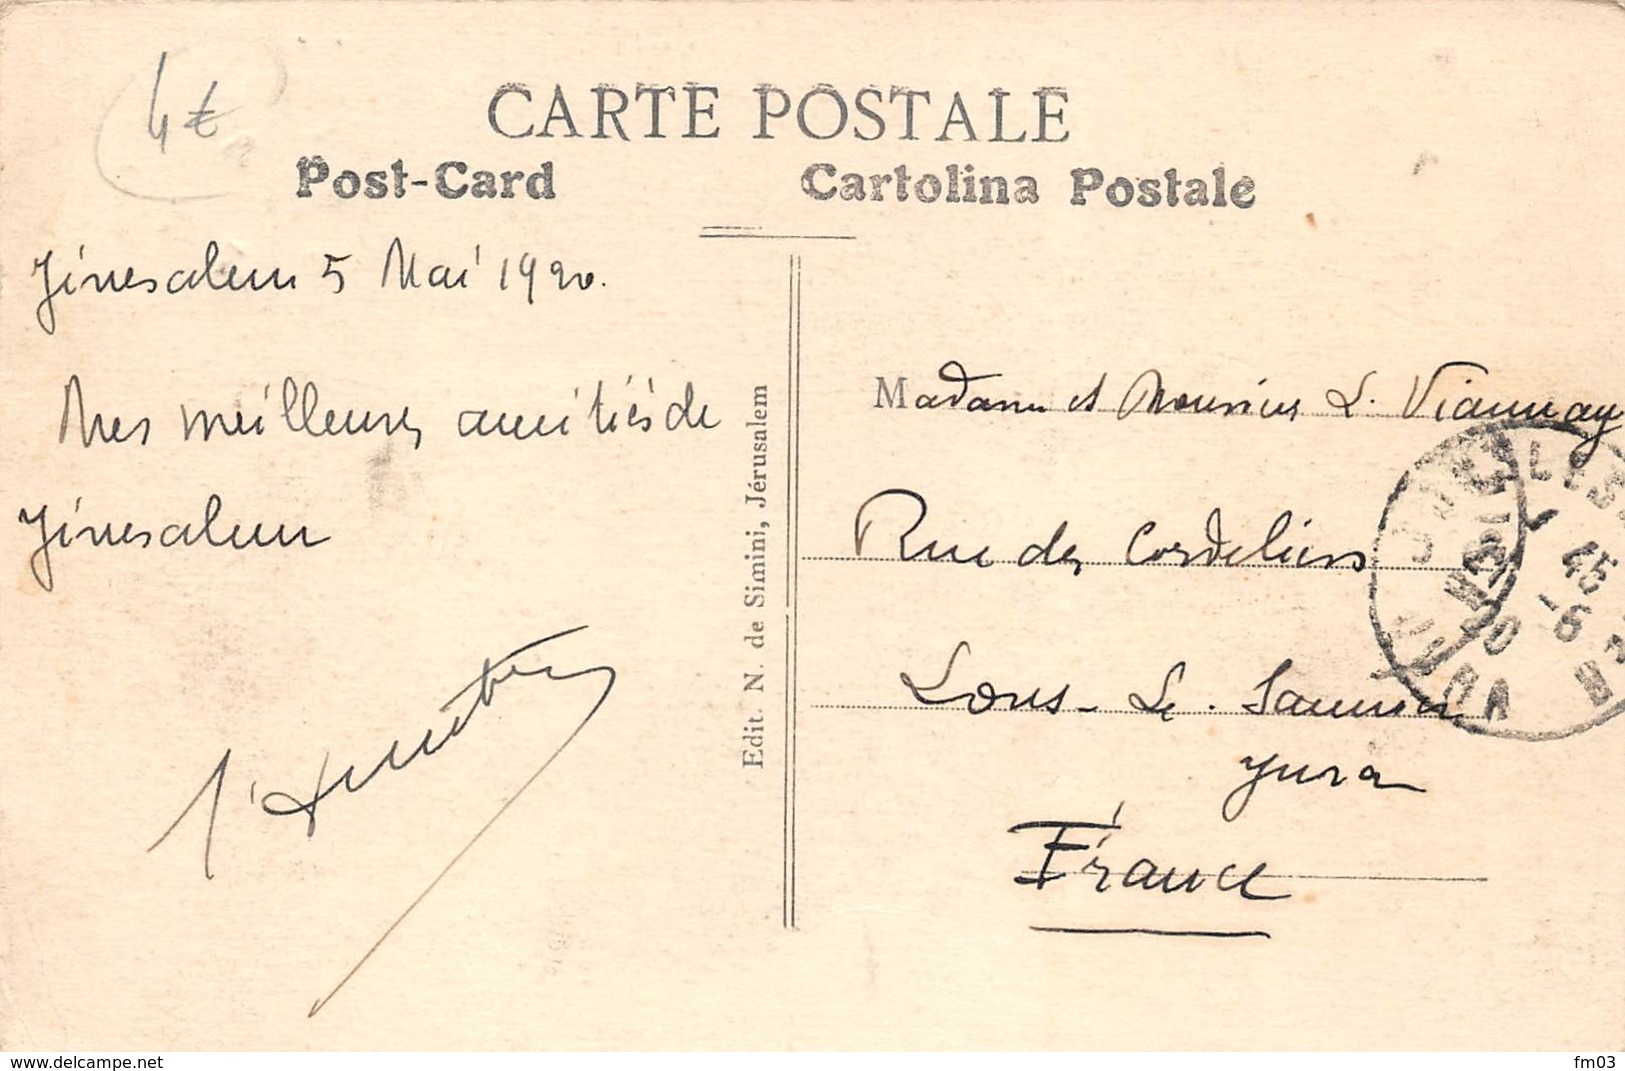 4€
CARTE POSTALE
Post-Card
Cartolina Postale
Jérusalem 5 Mai 1920.
Mes meilleures amitiés de
Jérusalem
Edit. N. de Simini, Jérusalem
Madame et Monsieur L. Viannay
Rue des Cordeliers
Lons-Le-Saunier
Jura
France
45
-6
20
JURA
www.delcampe.net
fm03